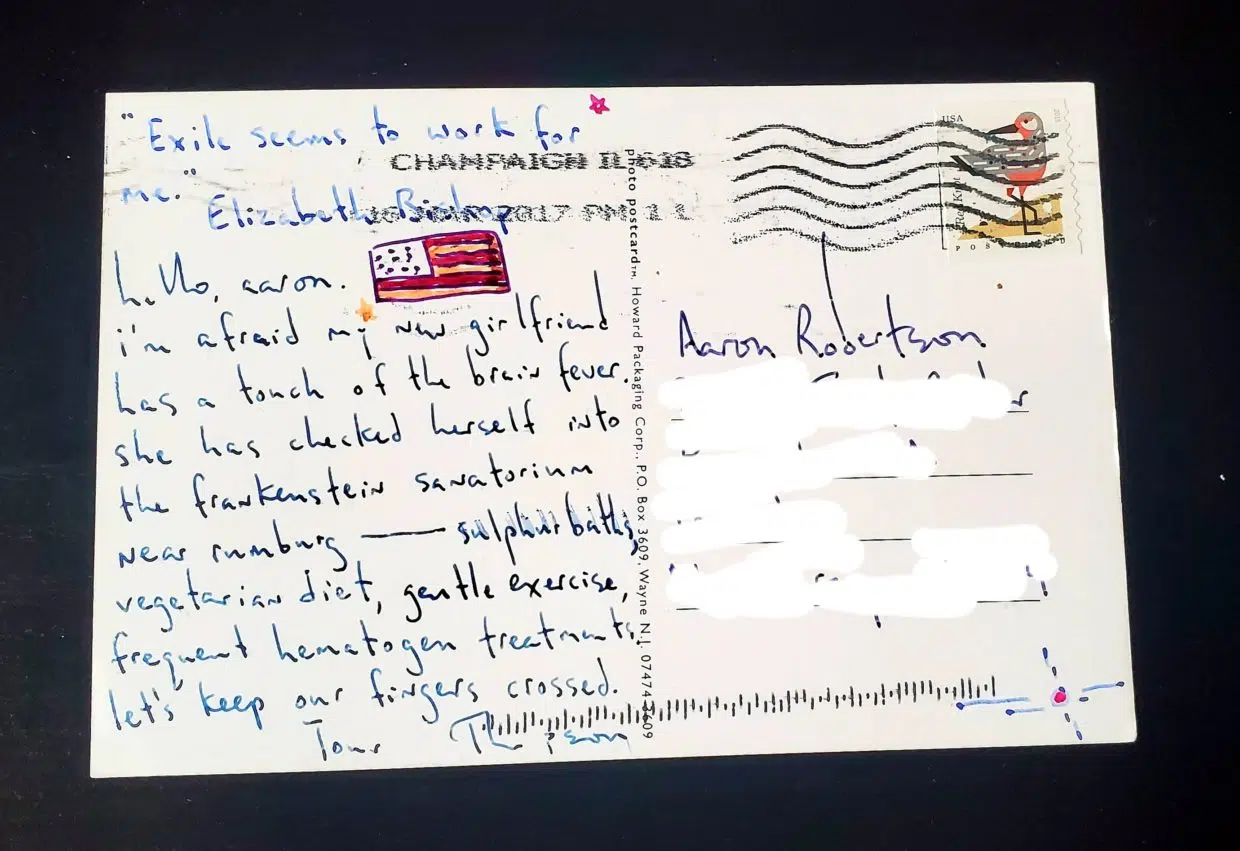 "Exile seems to work for
me."
Elizabeth Bishop
CHAMPAIGN IL 618
2017 PM 1 L
hello, aaron.
i'm afraid my new girlfriend
has a touch of the brain fever.
she has checked herself into
the frankenstein sanatorium
near rumburg — sulphur baths,
vegetarian diet, gentle exercise,
frequent hematogen treatments.
let's keep our fingers crossed.
Photo postcard™. Howard Packaging Corp., P.O. Box 3609, Wayne N.J. 07474-3609
USA
2015
Red Knot
POSTCARD
Aaron Robertson